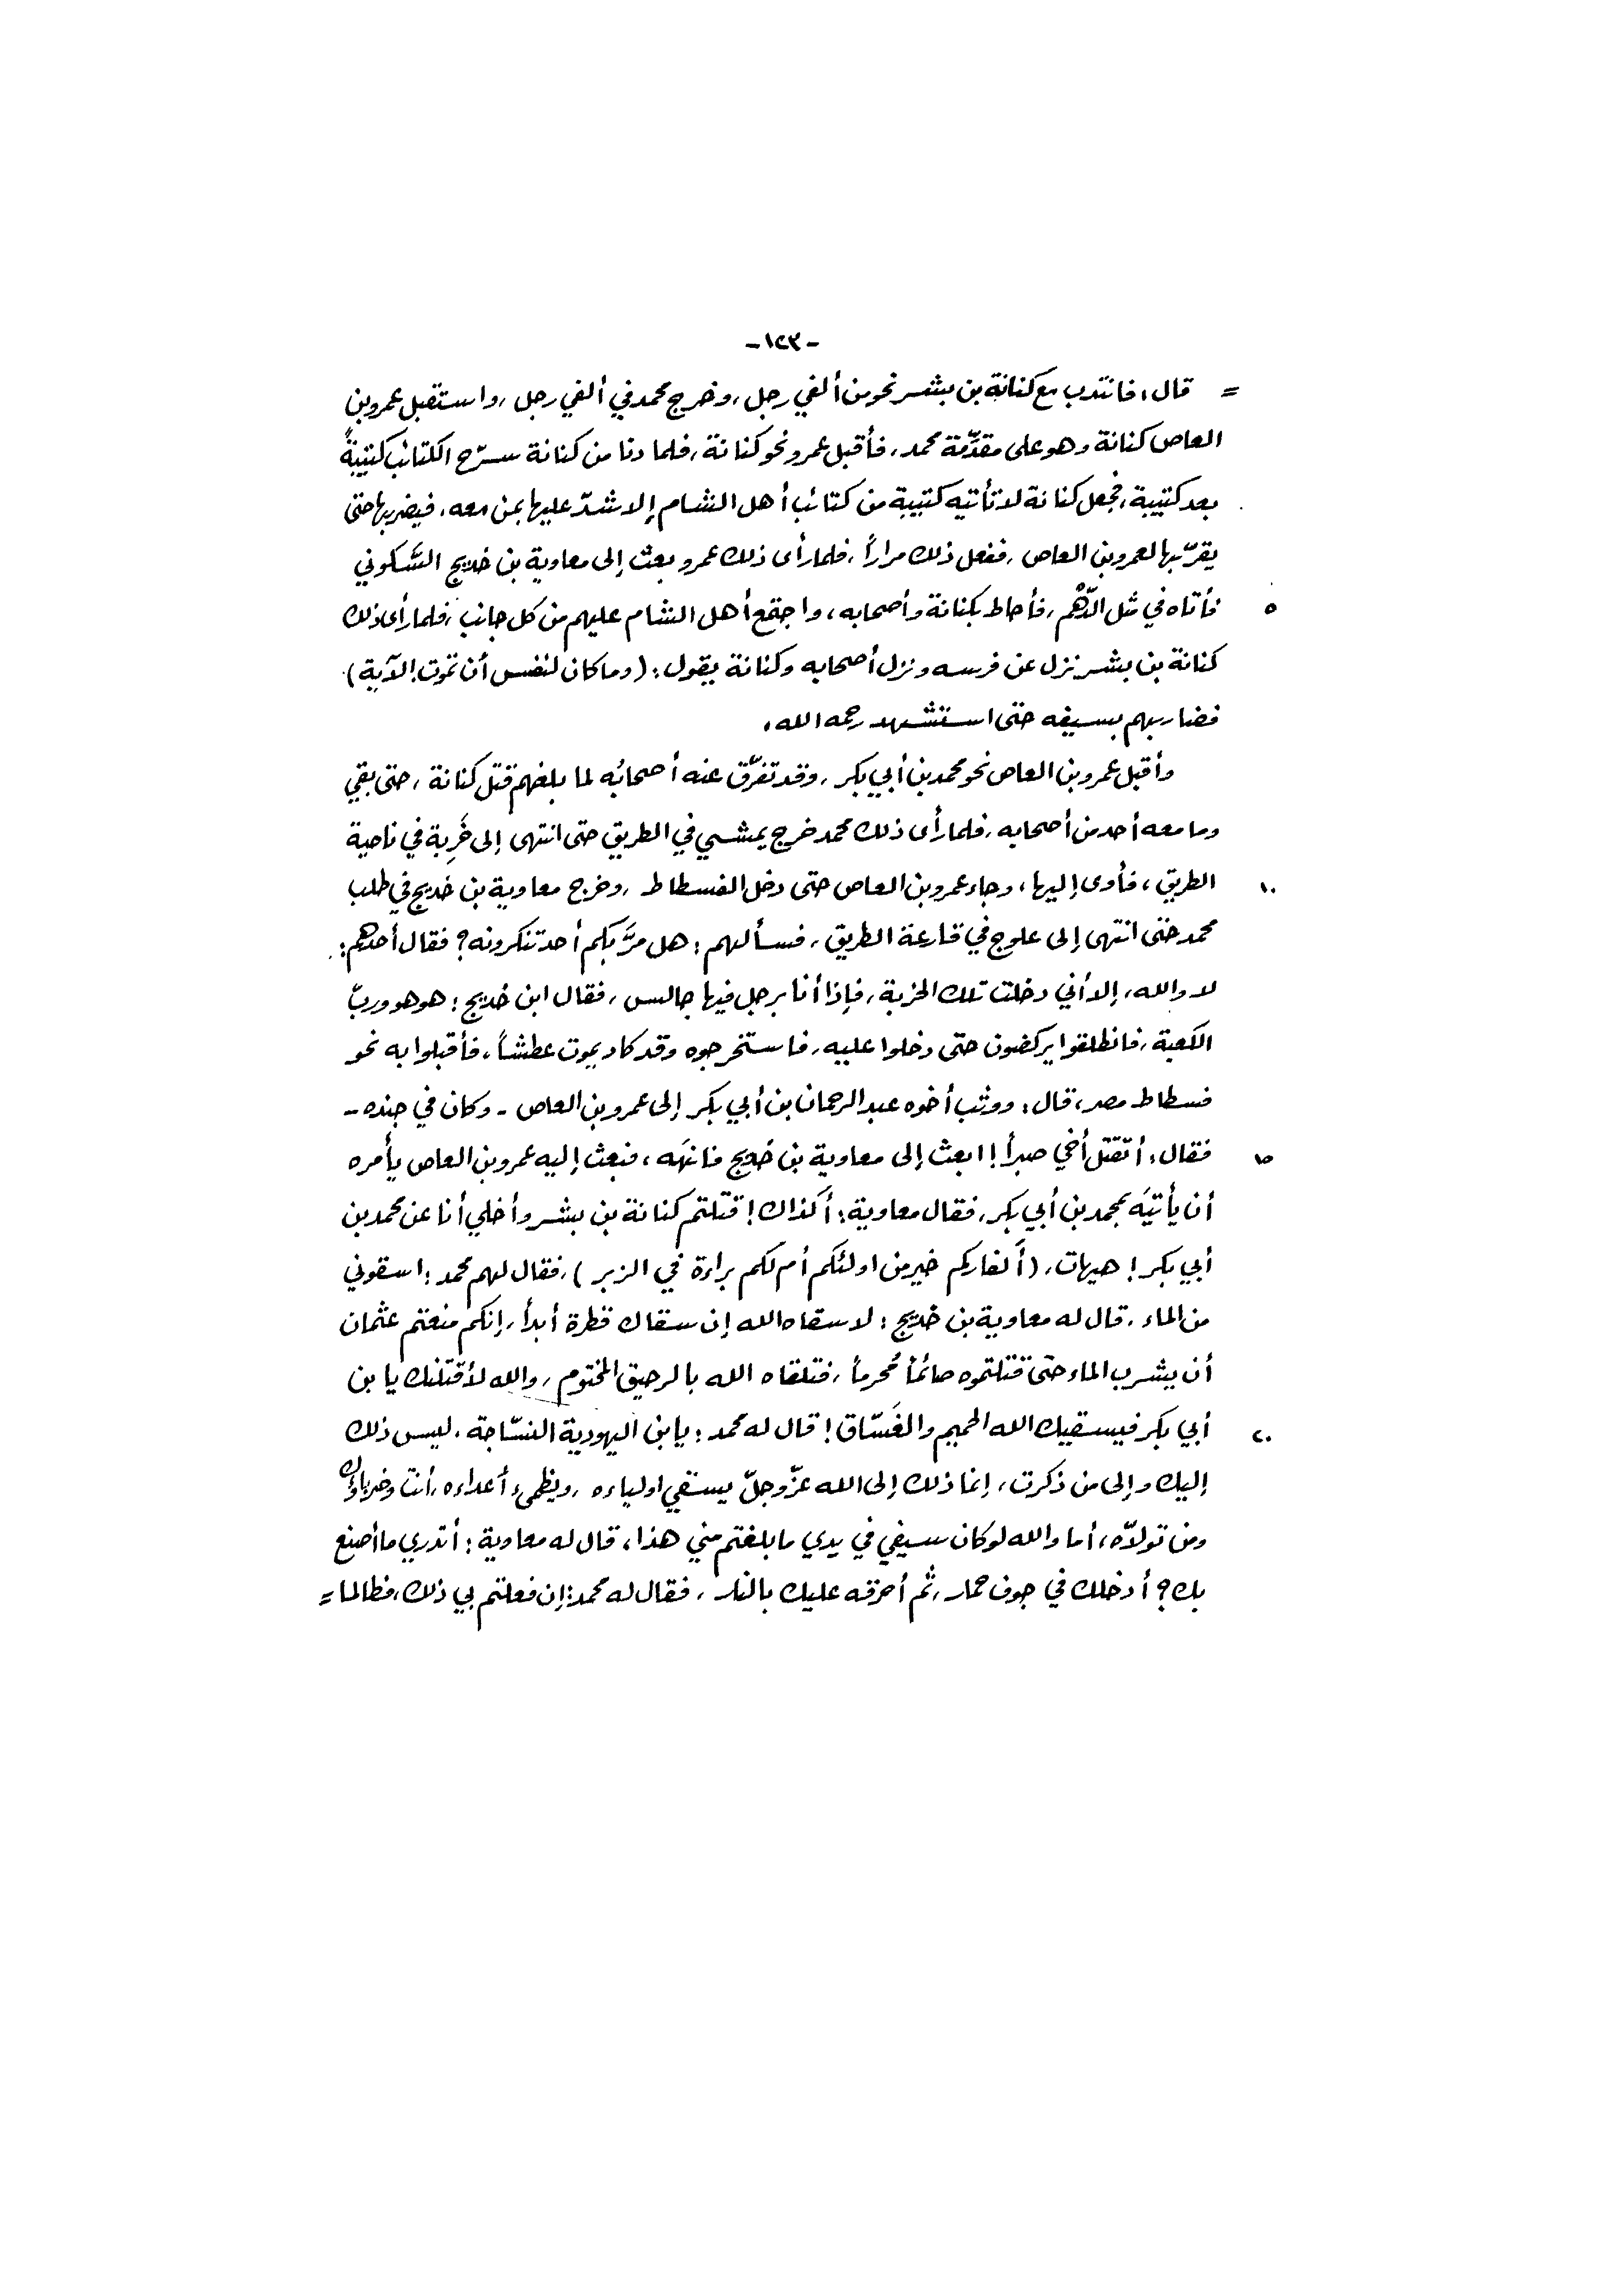 -١٢٣-
= قال: فانتدب مع كنانة بن بشر نحو من ألفي رجل، وخرج محمد في ألفي رجل، واستقبل عمرو بن
العاص كنانة وهو على مقدّمة محمد، فأقبل عمرو نحو كنانة، فلما دنا من كنانة سرّح الكتائب كتيبةً
بعد كتيبة، فجعل كنانة لا تأتيه كتيبة من كتائب أهل الشام إلا شدّ عليها بمن معه، فيضربها حتى
يقرّبها لعمرو بن العاص، ففعل ذلك مراراً، فلما رأى ذلك عمرو بعث إلى معاوية بن خديج السَّكوني
٥ فأتاه في مثل الدّهْم، فأحاط بكنانة وأصحابه، واجتمع أهل الشام عليهم من كل جانب، فلما رأى ذلك
كنانة بن بشر نزل عن فرسه ونزل أصحابه وكنانة يقول: (وما كان لنفس أن تموت. الآية)
فضاربهم بسيفه حتى استشهد رحمه الله.
وأقبل عمرو بن العاص نحو محمد بن أبي بكر، وقد تفرّق عنه أصحابُه لما بلغهم قتل كنانة، حتى بقي
وما معه أحد من أصحابه، فلما رأى ذلك محمد خرج يمشي في الطريق حتى انتهى إلى خَرِبة في ناحية
١٠ الطريق، فأوى إليها، وجاء عمرو بن العاص حتى دخل الفسطاط، وخرج معاوية بن خديج في طلب
محمد حتى انتهى إلى علوج في قارعة الطريق، فسألهم: هل مرَّ بكم أحد تنكرونه؟ فقال أحدهم:
لا والله، إلا أني دخلت تلك الخربة، فإذا أنا برجل فيها جالس، فقال ابن خديج: هو هو وربّ
الكعبة، فانطلقوا يركضون حتى دخلوا عليه، فاستخرجوه وقد كاد يموت عطشاً، فأقبلوا به نحو
فسطاط مصر، قال: ووثب أخوه عبد الرحمان بن أبي بكر إلى عمرو بن العاص - وكان في جنده -
١٥ فقال: أتقتل أخي صبراً! ابعث إلى معاوية بن خديج فانهَه، فبعث إليه عمرو بن العاص يأمره
أن يأتيَه بمحمد بن أبي بكر، فقال معاوية: أكذاك! قتلتم كنانة بن بشر وأخلي أنا عن محمد بن
أبي بكر! هيهات، (أكفاركم خير من اولئكم أم لكم براءة في الزبر)، فقال لهم محمد: اسقوني
من الماء، قال له معاوية بن خديج: لا سقاه الله إن سقاك قطرة أبداً، إنكم منعتم عثمان
أن يشرب الماء حتى قتلتموه صائماً مُحرماً، فتلقاه الله بالرحيق المختوم، والله لأقتلنك يا بن
٢٠ أبي بكر فيسقيك الله الحميم والغَسّاق! قال له محمد: يا بن اليهودية النسّاجة، ليس ذلك
إليك وإلى من ذكرت، إنما ذلك إلى الله عزّ وجلّ يسقي اولياءه، ويظمىء أعداءه، أنت وضرباؤك
ومن تولاّه، أما والله لو كان سيفي في يدي ما بلغتم مني هذا، قال له معاوية: أتدري ما أصنع
بك؟ أدخلك في جوف حمار، ثم أحرقه عليك بالنار، فقال له محمد: إن فعلتم بي ذلك، فطالما =